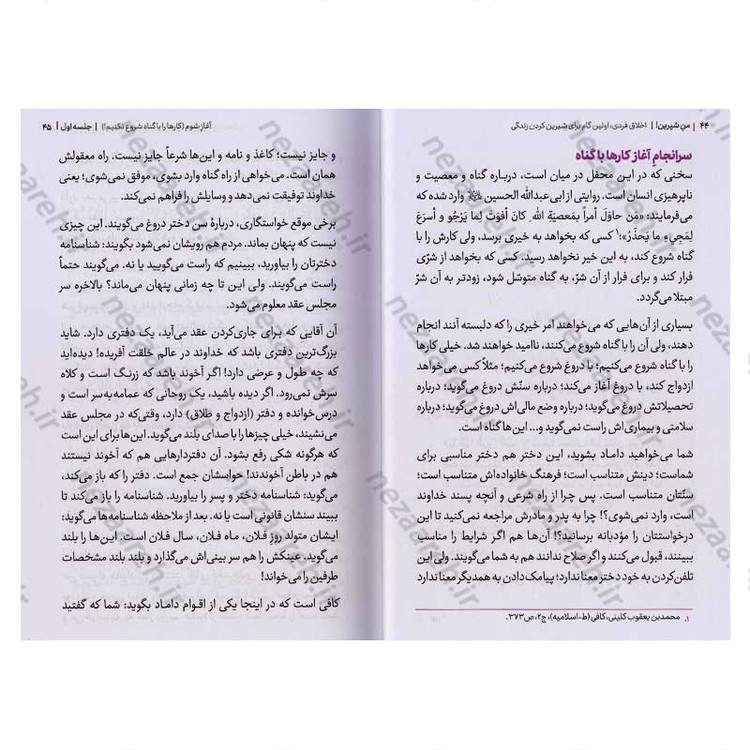 ۴۴ | من شیرین! | اخلاق فردی، اولین گام برای شیرین کردن زندگی
سرانجامِ آغاز کارها با گناه
سخنی که در این محفل در میان است، درباره گناه و معصیت و
ناپرهیزی انسان است. روایتی از ابی‌عبدالله الحسین وارد شده که
می‌فرمایند: «مَن حاوَلَ أمراً بِمَعصیَةِ اللهِ کانَ أفوَتَ لِما یَرْجُو وَ أسرَعَ
لِمَجِيءِ ما یَحذَرُ»؛۱ کسی که بخواهد به خیری برسد، ولی کارش را با
گناه شروع کند، به این خیر نخواهد رسید. کسی که بخواهد از شرّی
فرار کند و برای فرار از آن شرّ، به گناه متوسّل شود، زودتر به آن شرّ
مبتلا می‌گردد.
بسیاری از آن‌هایی که می‌خواهند امر خیری را که دلبسته آنند انجام
دهند، ولی آن را با گناه شروع می‌کنند، ناامید خواهند شد. خیلی کارها
را با گناه شروع می‌کنیم؛ با دروغ شروع می‌کنیم؛ مثلاً کسی می‌خواهد
ازدواج کند، با دروغ آغاز می‌کند؛ درباره سنّش دروغ می‌گوید؛ درباره
تحصیلاتش دروغ می‌گوید؛ درباره وضع مالی‌اش دروغ می‌گوید؛ درباره
سلامتی و بیماری‌اش راست نمی‌گوید و... این‌ها گناه است.
شما می‌خواهید داماد بشوید، این دختر هم دختر مناسبی برای
شماست؛ دینش متناسب است؛ فرهنگ خانواده‌اش متناسب است؛
سنّتان متناسب است. پس چرا از راه شرعی و آنچه پسند خداوند
است، وارد نمی‌شوی؟! چرا به پدر و مادرش مراجعه نمی‌کنید تا این
درخواستتان را مؤدبانه برسانید؟! آن‌ها هم اگر شرایط را مناسب
ببینند، قبول می‌کنند و اگر صلاح ندانند هم به شما می‌گویند. ولی این
تلفن‌کردن به خود دختر معنا ندارد؛ پیامک‌دادن به همدیگر معنا ندارد
۱. محمدبن یعقوب کلینی، کافی (ط-اسلامیه)، ج۲، ص۳۷۳.
آغاز شوم (کارها را با گناه شروع نکنیم!) | جلسه اول | ۴۵
و جایز نیست؛ کاغذ و نامه و این‌ها شرعاً جایز نیست. راه معقولش
همان است. می‌خواهی از راه گناه وارد بشوی، موفق نمی‌شوی؛ یعنی
خداوند توفیقت نمی‌دهد و وسایلش را فراهم نمی‌کند.
برخی موقع خواستگاری، دربارهٔ سن دختر دروغ می‌گویند. این چیزی
نیست که پنهان بماند. مردم هم رویشان نمی‌شود بگویند: شناسنامه
دخترتان را بیاورید، ببینیم که راست می‌گویید یا نه. می‌گویند حتماً
راست می‌گویند. ولی این تا چه زمانی پنهان می‌ماند؟ بالاخره سر
مجلس عقد معلوم می‌شود.
آن آقایی که برای جاری‌کردن عقد می‌آید، یک دفتری دارد. شاید
بزرگ‌ترین دفتری باشد که خداوند در عالم خلقت آفریده! دیده‌اید
که چه طول و عرضی دارد! اگر آخوند باشد که زرنگ است و کلاه
سرش نمی‌رود. اگر دیده باشید، یک روحانی که عمامه‌به‌سر است و
درس‌خوانده و دفتر (ازدواج و طلاق) دارد، وقتی‌که در مجلس عقد
می‌نشیند، خیلی چیزها را با صدای بلند می‌گوید. این‌ها برای این است
که هرگونه شکی رفع بشود. آن‌هایی هم که آخوند نیستند
هم در باطن آخوندند! حواسشان جمع است. دفتر را که باز می‌کند،
می‌گوید: شناسنامه دختر و پسر را بیاورید. شناسنامه را باز می‌کند تا
ببیند سنشان قانونی است یا نه. بعد از ملاحظه شناسنامه‌ها می‌گوید:
ایشان متولد روزِ فلان، ماه فلان، سال فلان است. این‌ها را بلند
می‌گوید. عینکش را هم سر بینی‌اش می‌گذارد و بلند بلند مشخصات
طرفین را می‌خواند!
کافی است که در اینجا یکی از اقوام داماد بگوید: شما که گفتید
nezaareh.ir